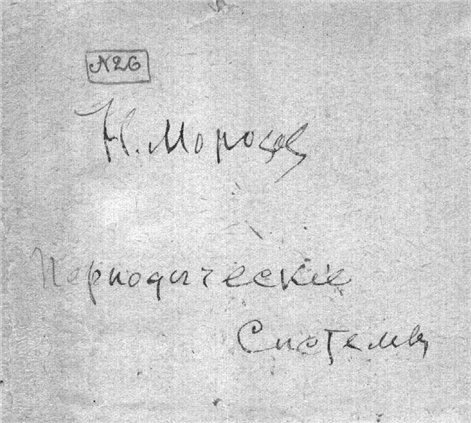 N26
Н. Морозов
Периодическіе
Системы